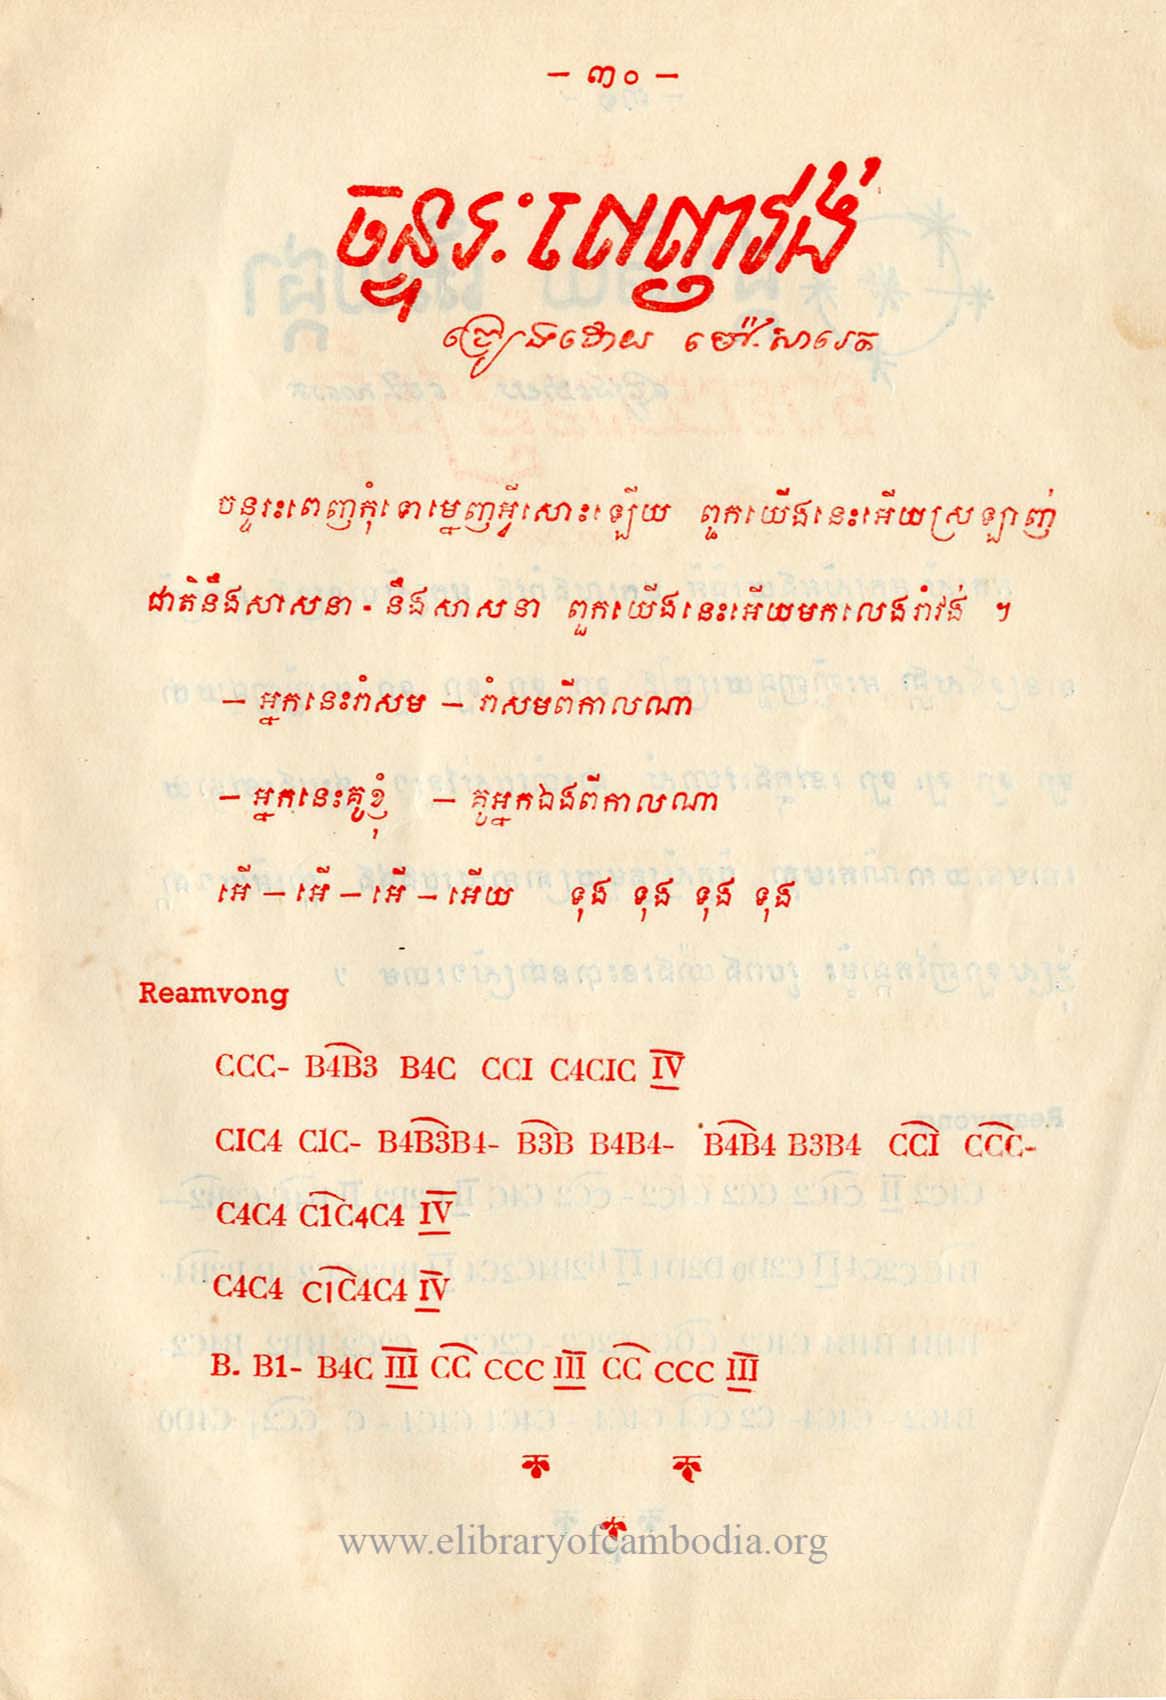 - ៣០ -
ចន្ទរះពេញវង់
ច្រៀងដោយ ម៉ៅ.សារេត
ចន្ទរះពេញកុំទោម្នេញអ្វីសោះឡើយ ពួកយើងនេះអើយស្រឡាញ់
ជាតិនឹងសាសនា - នឹងសាសនា ពួកយើងនេះអើយមកលេងរាំវង់ ។
- អ្នកនេះរាំសម - រាំសមពីកាលណា
- អ្នកនេះគូខ្ញុំ - គូអ្នកឯងពីកាលណា
អើ - អើ - អើ - អើយ ទុង ទុង ទុង ទុង
Reamvong
CCC- B4B3 B4C CCI C4CIC IV
CIC4 C1C- B4B3B4- B3B B4B4- B4B4 B3B4 CCI CCC-
C4C4 C1C4C4 IV
C4C4 C1C4C4 IV
B. B1- B4C III CC CCC III CC CCC III
www.elibraryofcambodia.org